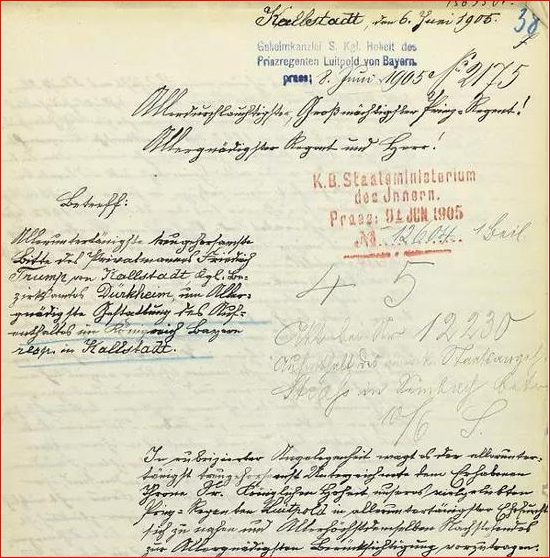 Kallstadt, den 6. Juni 1905.
38
7
Geheimkanzlei S. Kgl. Hoheit des
Prinzregenten Luitpold von Bayern.
praes: 8. Juni 1905 No 2175
Allerdurchlauchtigster, Großmächtigster Prinz-Regent!
Allergnädigster Regent und Herr!
K.B. Staatsministerium
des Innern.
Praes: 9. JUN. 1905
№ 12604. 1 Beil
Betreff:
Alleruntertänigste treugehorsamste
Bitte des Privatmanns Friedrich
Trump von Kallstadt Kgl. Be-
zirksamts Dürkheim, um Aller-
gnädigste Gestattung des Auf-
enthalts im Königreich Bayern
resp. in Kallstadt.
4 5
12230
Aufenthalt des Staatsangeh
10/6 S.
In rubrizierter Angelegenheit wagt es der allerunter-
tänigst treugehorsamst Unterzeichnete dem Erhabenen
Throne Sr. Königlichen Hoheit unseres vielgeliebten
Prinz-Regenten Luitpold in alleruntertänigster Ehrfurcht
sich zu nahen und Allerhöchstdemselben Nachstehendes
zur Allergnädigsten Berücksichtigung vorzutragen.